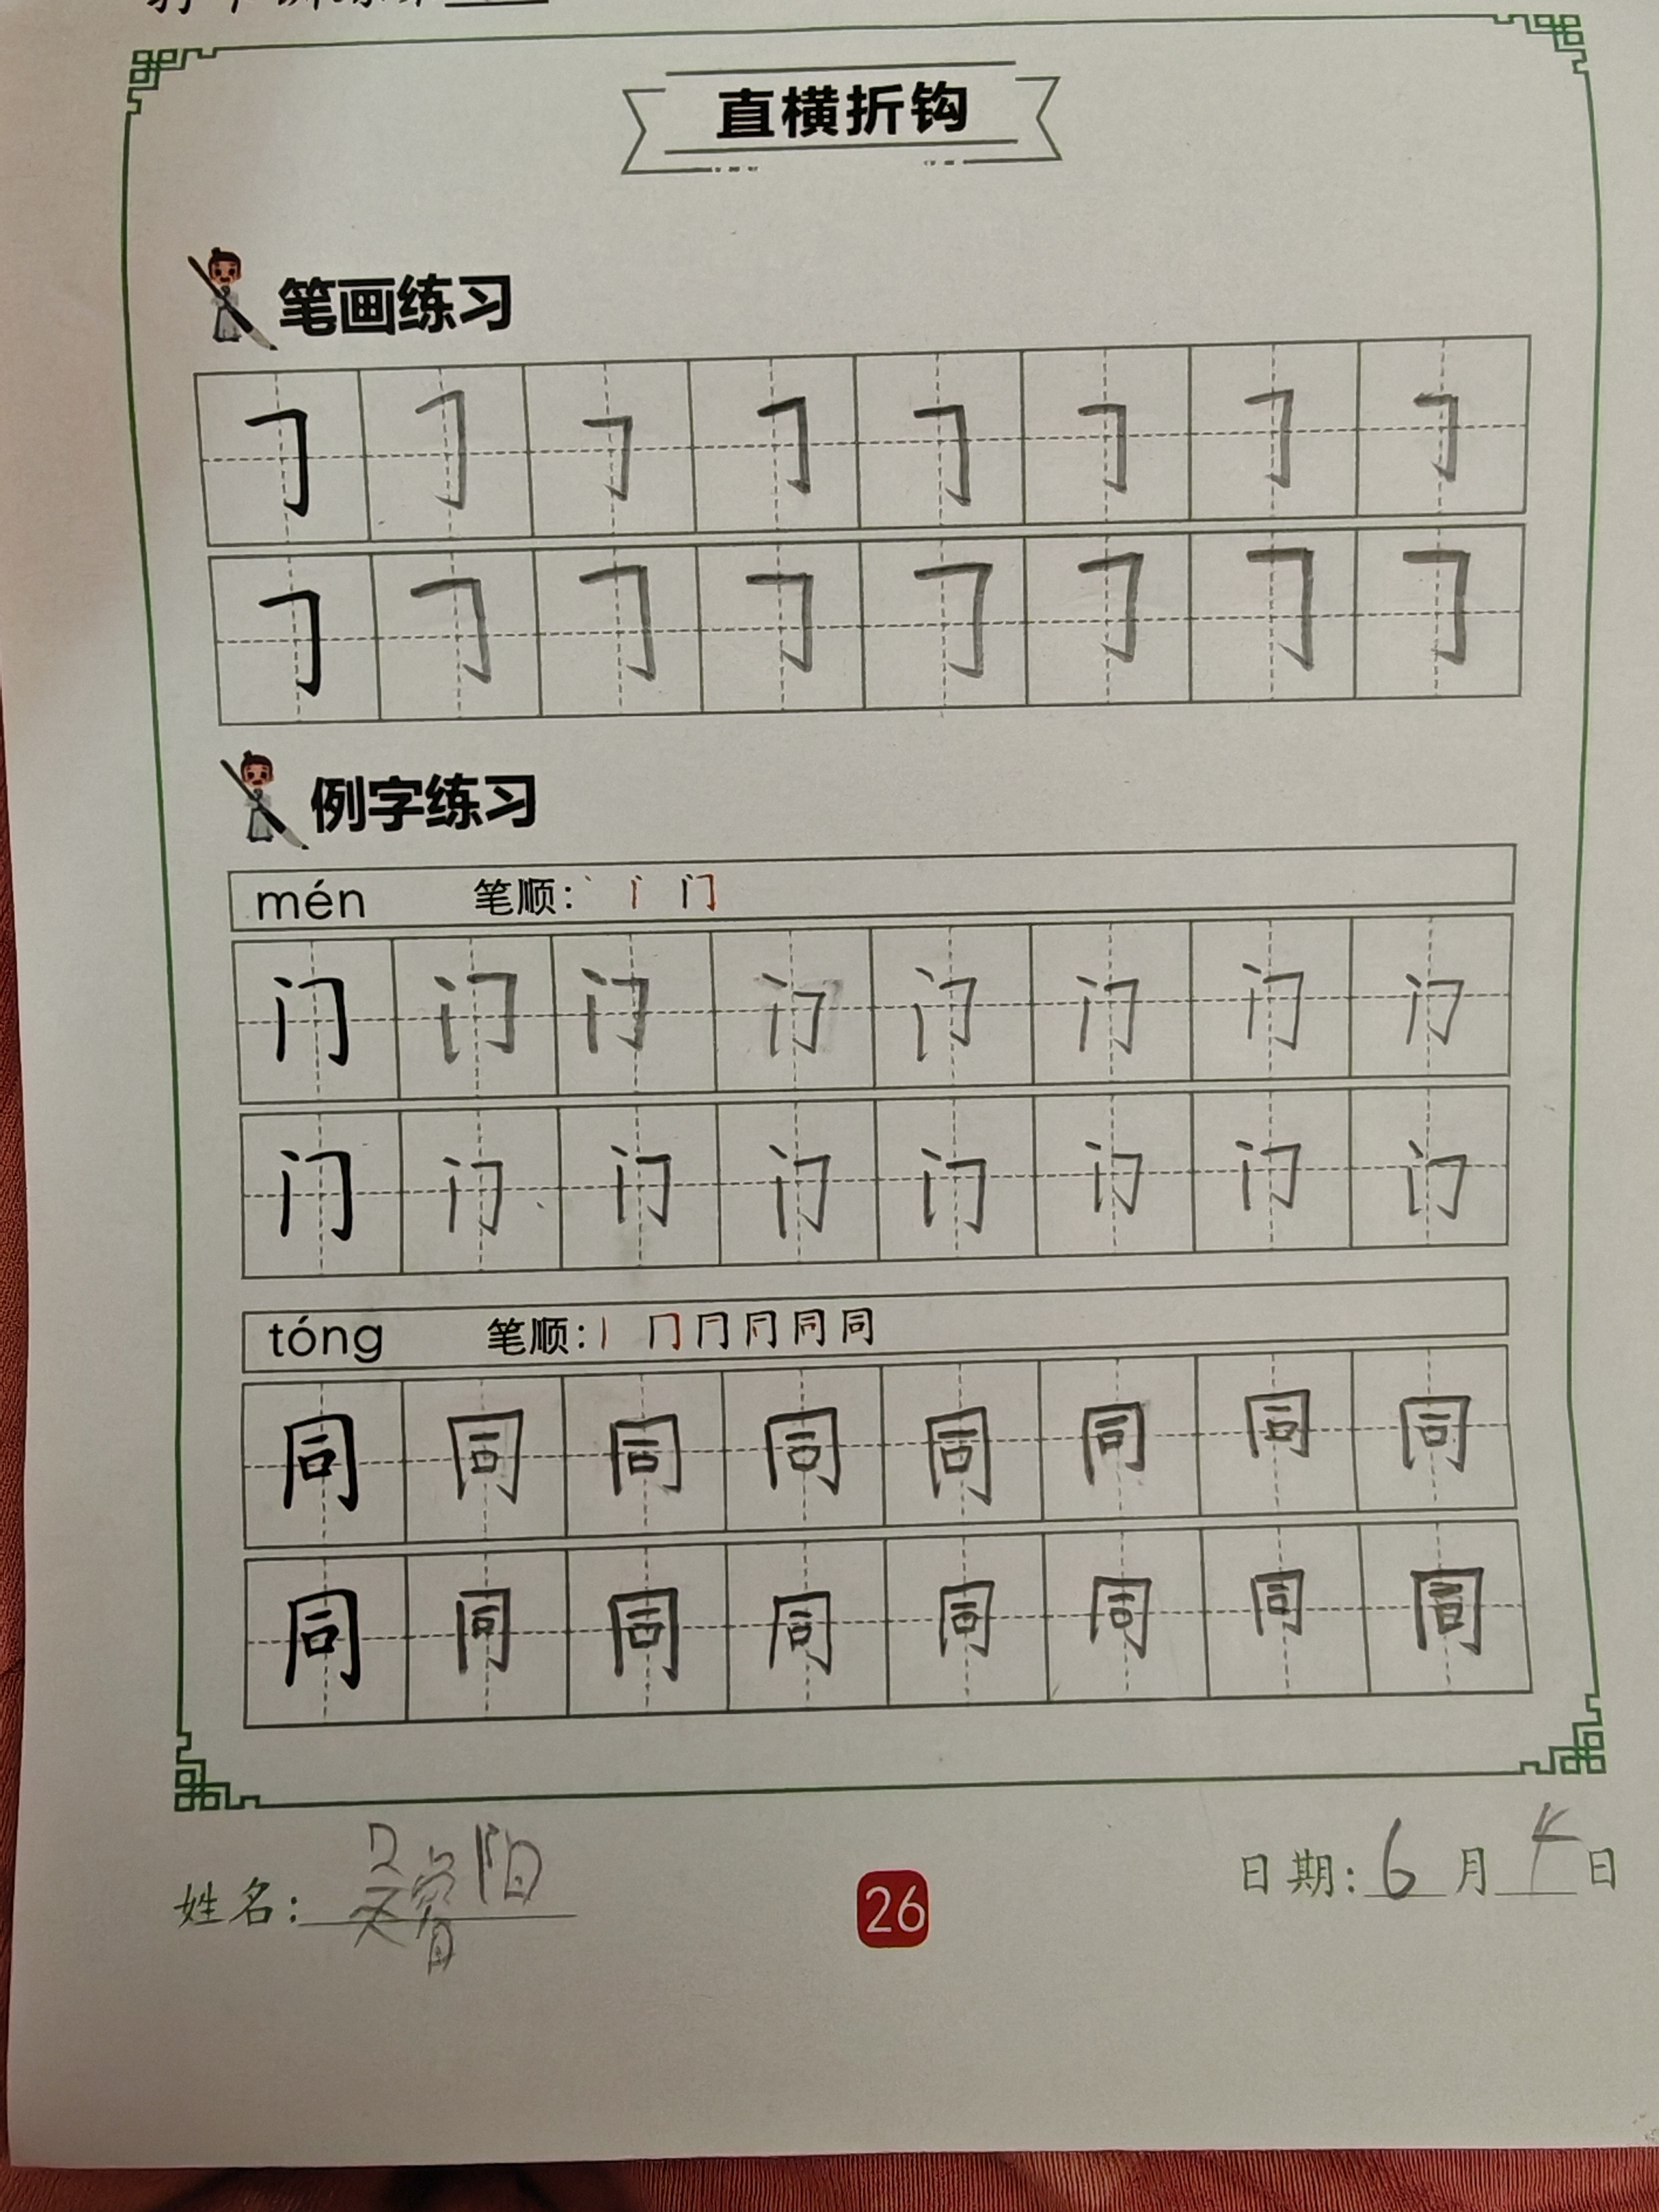 直横折钩
笔画练习
㇆ ㇆ ㇆ ㇆ ㇆ ㇆ ㇆ ㇆
㇆ ㇆ ㇆ ㇆ ㇆ ㇆ ㇆ ㇆
例字练习
mén 笔顺: 丶 门
门 门 门 门 门 门 门 门
门 门 门 门 门 门 门 门
tóng 笔顺: 丨 冂 同
同 同 同 同 同 同 同 同
同 同 同 同 同 同 同 同
姓名: 睿阳
26
日期: 6 月 4 日